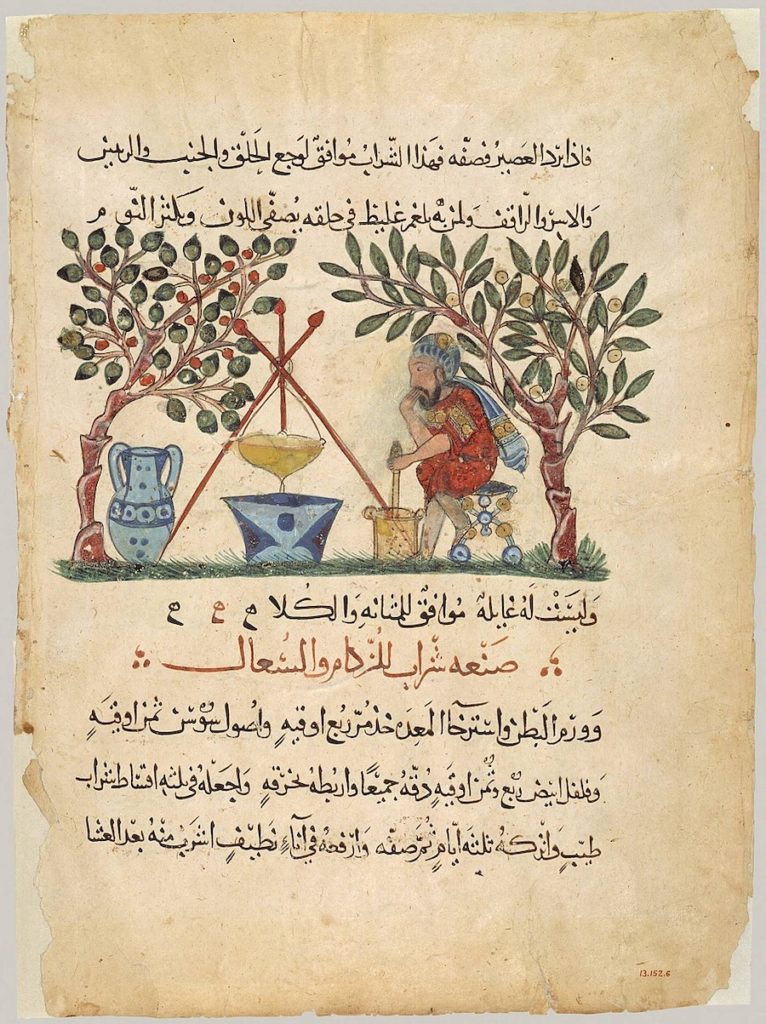 فاذا برد العصير فصفّه فهذا الشراب موافق لوجع الحلق والجنب والرييس
والاسر والراقف ولمن به بلغم غليظ في حلقه يصفّي اللون ويكثر النوم م
وليست له غايلة موافق للمثانه والكلا ح ح ح
صنعه شراب للزكام والسعال
وورم البطن واسترخا المعده خذ مرّ ربع اوقيه واصول سوسن ثمن اوقيه
وفلفل ابيض ربع وثمن اوقيه دقه جميعًا واربطه بخرقه واجعله في ثلثه اقساط شراب
طيب واتركه ثلثه أيام ثم صفه وارفعه في اناء نظيف اشرب منه بعد العشا
13.152.6